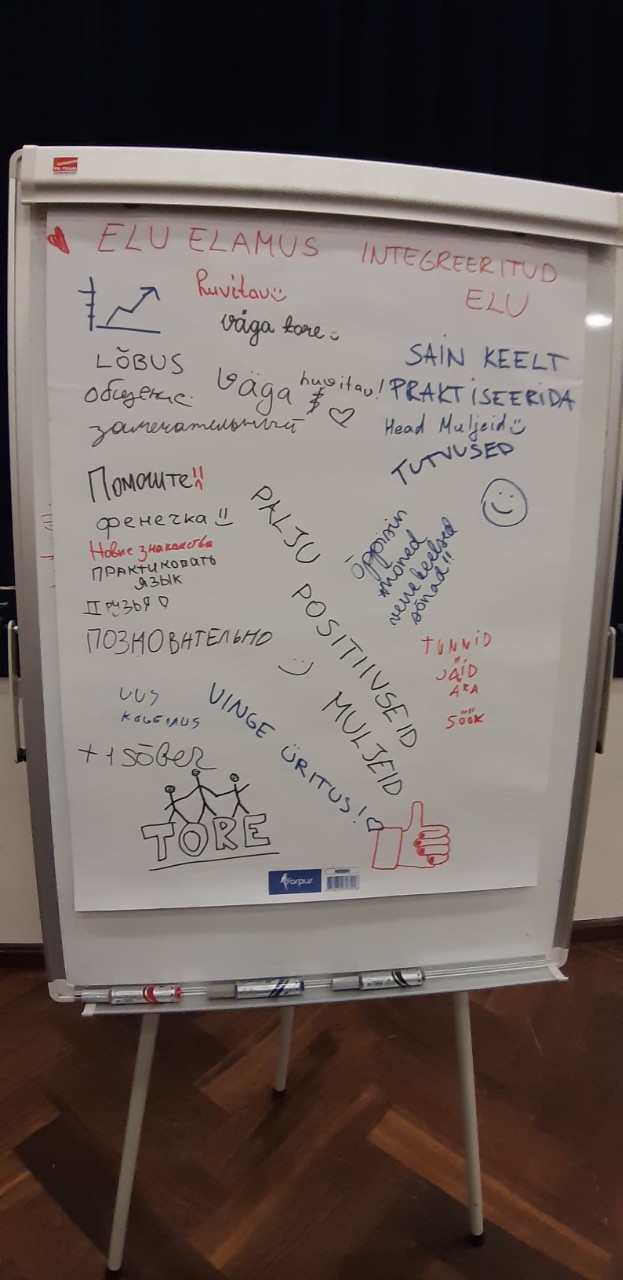 ELU ELAMUS
INTEGREERITUD
ELU
huvitav
väga tore
LÕBUS
общение
замечательный
Väga huvitav!
SAIN KEELT
PRAKTISEERIDA
Head Muljeid
TUTVUSED
Помогите!!
фенечка
Новые знакомства
ПРАКТИКОВАТЬ
ЯЗЫК
ДРУЗЬЯ
ПОЗНОВАТЕЛЬНО
PALJU POSITIIVSEID
MULJEID
Õppisin
mõned
venekeelsed
sõnad!!
TUNNID
JÄID
SÖÖK
UUS
KOGEMUS
VINGE ÜRITUS!
++1 SÕBER
TORE
forpus